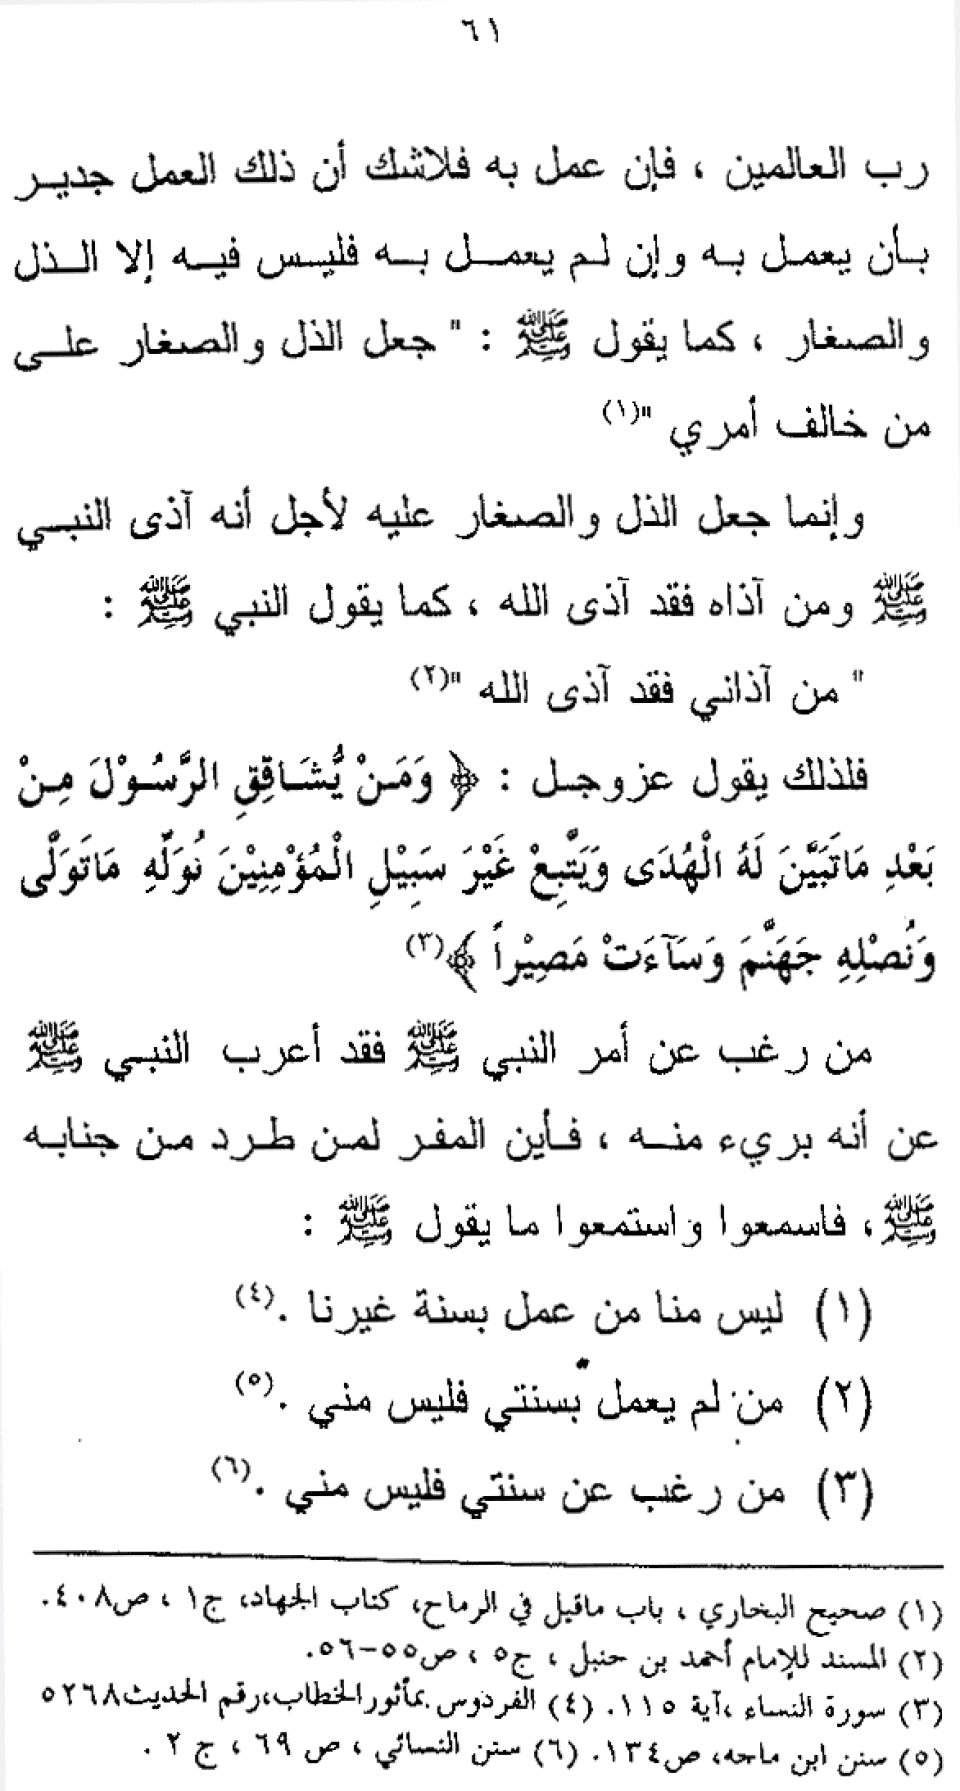 ٦١
رب العالمين ، فإن عمل به فلاشك أن ذلك العمل جدير
بأن يعمل به وإن لم يعمل به فليس فيه إلا الذل
والصغار ، كما يقول ﷺ : " جعل الذل والصغار على
من خالف أمري "(١)
وإنما جعل الذل والصغار عليه لأجل أنه آذى النبي
ﷺ ومن آذاه فقد آذى الله ، كما يقول النبي ﷺ :
" من آذاني فقد آذى الله "(٢)
فلذلك يقول عزوجل : ﴿ وَمَنْ يُّشَاقِقِ الرَّسُوْلَ مِنْ
بَعْدِ مَاتَبَيَّنَ لَهُ الْهُدَى وَيَتَّبِعْ غَيْرَ سَبِيْلِ الْمُؤْمِنِيْنَ نُوَلِّهِ مَاتَوَلَّى
وَنُصْلِهِ جَهَنَّمَ وَسَآءَتْ مَصِيْراً ﴾(٣)
من رغب عن أمر النبي ﷺ فقد أعرب النبي ﷺ
عن أنه بريء منه ، فأين المفر لمن طرد من جنابه
ﷺ، فاسمعوا واستمعوا ما يقول ﷺ :
(١) ليس منا من عمل بسنة غيرنا .(٤)
(٢) من لم يعمل بسنتي فليس مني .(٥)
(٣) من رغب عن سنتي فليس مني .(٦)
(١) صحيح البخاري ، باب ماقيل في الرماح، كتاب الجهاد، ج١ ، ص٤٠٨.
(٢) المسند للإمام أحمد بن حنبل ، ج٥ ، ص٥٥-٥٦.
(٣) سورة النساء ،آية ١١٥. (٤) الفردوس بمأثورالخطاب،رقم الحديث٥٢٦٨
(٥) سنن ابن ماجه، ص١٣٤. (٦) سنن النسائي ، ص ٦٩ ، ج ٢ .